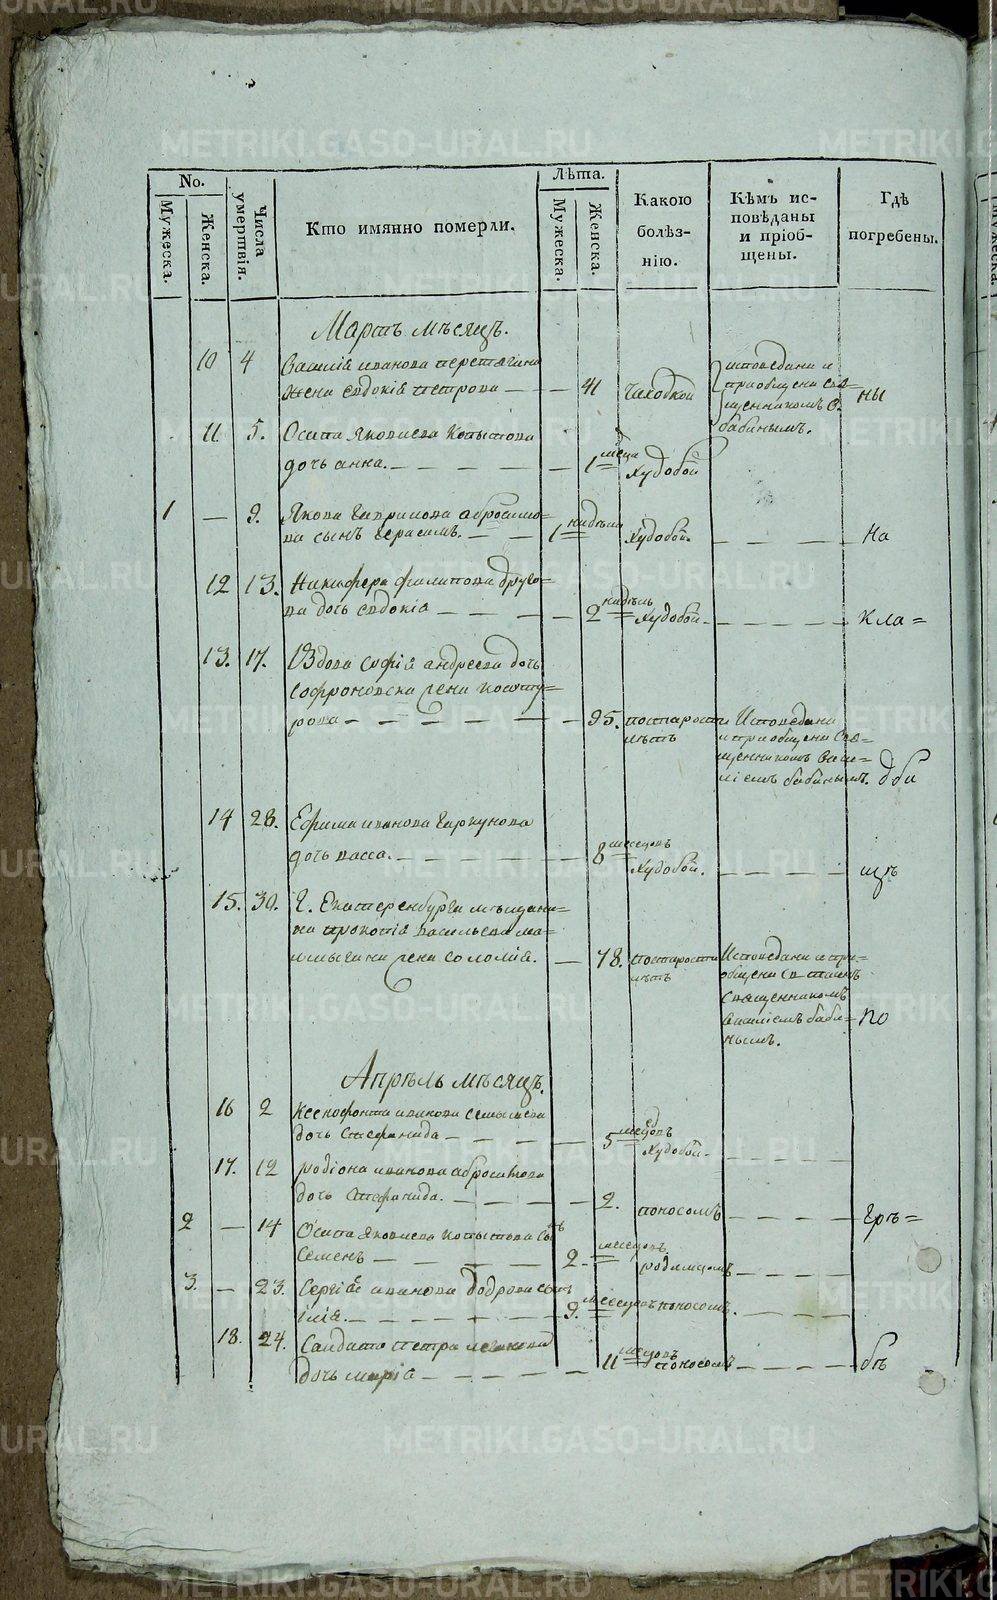 METRIKI.GASO-URAL.RU
No.
Мужеска.
Женска.
Числа умертвія.
Кто имянно померли.
Лѣта.
Мужеска.
Женска.
Какою
болѣз-
нію.
Кѣмъ ис-
повѣданы
и пріоб-
щены.
Гдѣ
погребены.
Мартъ мѣсяцъ.
10 4 Василія иванова перетягина
жена евдокія петрова — — 41 чахоткой
исповедани и
приобщени свя=
щенникомъ В.
бабинымъ.
ны
11 5. Осипа Яковлева Копытова
дочь анна. — — — — 1 мѣсца худобой
1 — 9. Якова гаврилова абросимо=
ва сынъ герасимъ. — — 1 недѣли худобой. — — — — На
12 13. Никифора филипова
дочь евдокіа — — — — 2 недѣль худобой — — — — кла=
13. 17. Вдова софіа андреева дочь
софроновска жена
— — — — — 95. постарости
лѣтъ
Исповедани
и приобщени свя=
щенникомъ васи=
ліемъ бабинымъ.
дби
14 28. Ефима иванова
дочь васса. — — — — 8 месецовъ худобой. — — — — щѣ
15. 30. Г. Екатеренбурга мѣщани=
на прокопіа васильева
жена соломіа. — 78. постарости
лѣтъ
Исповедани и при=
общени св таинъ
священникомъ
василіемъ баби=
нымъ.
по
Апрѣль мѣсяцъ.
16 2 Ксенофонта иванова
дочь стефанида — — — — 5 месецовъ худобой — — — —
17. 12 родіона иванова абросимова
дочь стефанида. — — — — 2. поносомъ — — — — гре=
2 — 14 Осипа Яковлева Копытова сынъ
Семенъ — — — — 2. месецовъ родимцомъ — — — —
3. — 23. Сергіа иванова бодрова сынъ
иліа. — — — — 9. месецовъ поносомъ. — — —
18. 24. Салдата петра
дочь маріа — — — — 11 месецовъ поносомъ — — — — бѣ